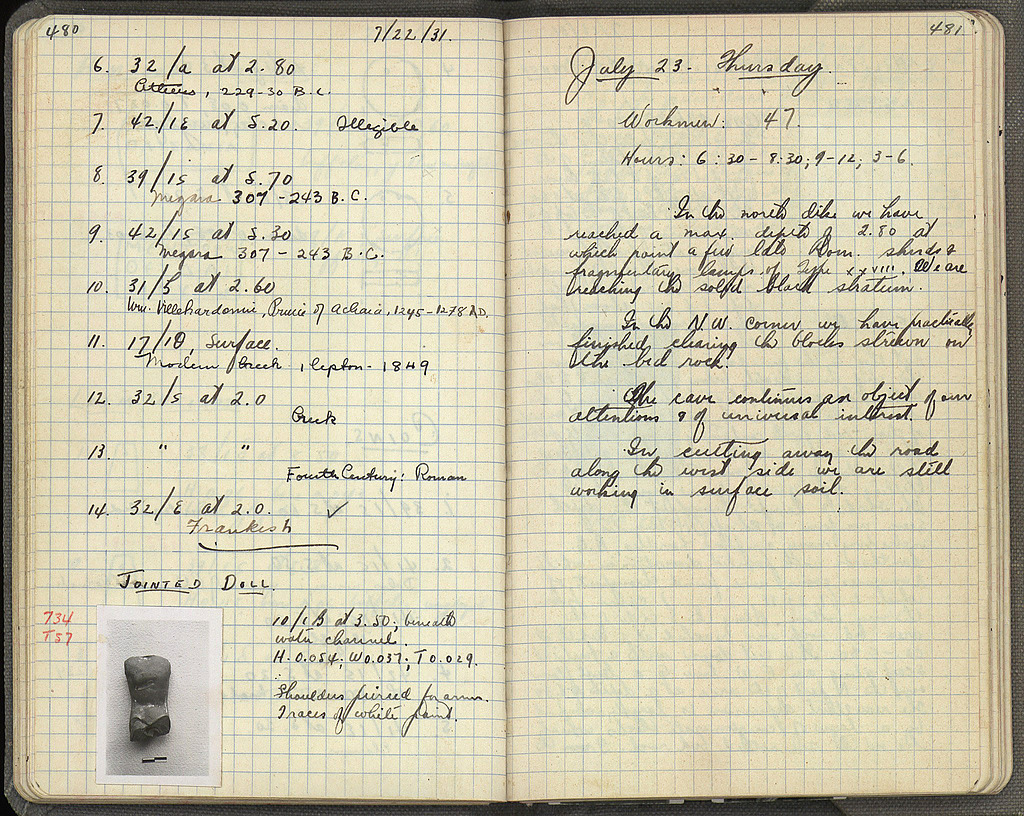 480
7/22/31.
6. 32/a at 2.80
Athens, 229-30 B.C.
7. 42/1E at 5.20. Illegible
8. 39/15 at 5.70
Megara 307-243 B.C.
9. 42/15 at 5.30
Megara 307-243 B.C.
10. 31/5 at 2.60
Wm. Villehardouin, Prince of Achaia, 1245-1278 A.D.
11. 17/10, Surface.
Modern Greek 1 lepton - 1849
12. 32/5 at 2.0
Greek
13. " "
Fourth Century: Roman
14. 32/E at 2.0. ✓
Frankish
JOINTED DOLL.
734
T57
10/1B at 3.50; beneath
water channel.
H. 0.054; W 0.037; T 0.029.
Shoulders pierced for arms.
Traces of white paint.
481
July 23. Thursday.
Workmen: 47.
Hours: 6:30-8:30; 9-12; 3-6.
In the north dike we have
reached a max. depth of 2.80 at
which point a few late Rom. sherds &
fragmentary lamps of Type XXVIII. We are
reaching the solid black stratum.
In the N.W. corner we have practically
finished clearing the blocks strewn on
the bed rock.
The cave continues an object of our
attentions & of universal interest.
In cutting away the road
along the west side we are still
working in surface soil.